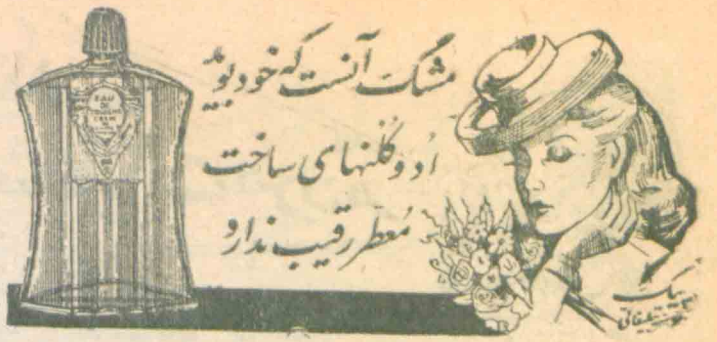 مشک آنست که خود ببوید
ادوکلنهای ساخت
معطر رقیب ندارد
EAU
DE
COLOGNE
پیک
تبلیغاتی